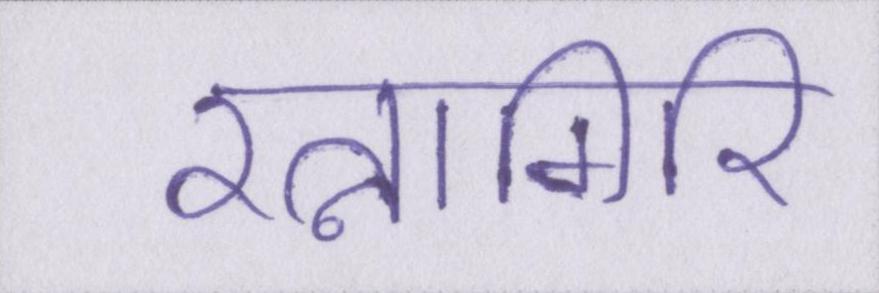 रत्नागिरि